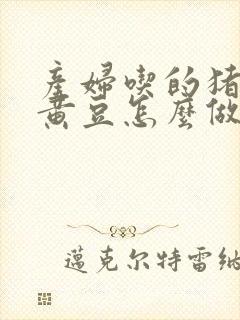 產婦喫的豬
黃豆怎麼做
邁克尔特雷納